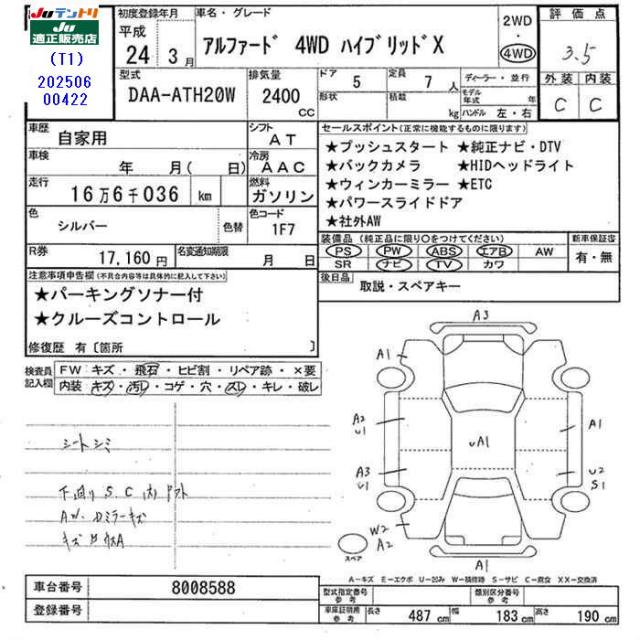 Juテントリ
Ju
適正販売店
(T1)
202506
00422
初度登録年月
平成
24年 3月
車名・グレード
アルファード 4WD ハイブリッドX
2WD
・
4WD
評価点
3.5
外装 内装
C C
型式
DAA-ATH20W
排気量
2400
cc
ドア 5
形状
定員 7人
積載 kg
ディーラー・並行
モデル年式 年
ハンドル 左・右
車歴
自家用
シフト
AT
車検
年 月( 日)
冷房
AAC
走行
16万6千036 km
燃料
ガソリン
色
シルバー
色替
色コード
1F7
R券
17,160円
名変通知期限
月 日
セールスポイント(正常に機能するものに限ります)
★プッシュスタート ★純正ナビ・DTV
★バックカメラ ★HIDヘッドライト
★ウィンカーミラー ★ETC
★パワースライドドア
★社外AW
装備品 (純正品に限り○をつけてください)
PS PW ABS エアB AW
SR ナビ TV カワ
新車保証書
有・無
後日品
取説・スペアキー
注意事項申告欄(不具合内容等は具体的に記入して下さい)
★パーキングソナー付
★クルーズコントロール
修復歴 有〔箇所 〕
検査員
記入欄
FW: キズ・飛石・ヒビ割・リペア跡・×要
内装: キズ・汚れ・コゲ・穴・スレ・キレ・破レ
シートシミ
下回り S.C
キズ
A3
A1
A2
U1
A3
U1
W2
A2
UA1
A1
U2
S1
A1
スペア
A-キズ E-エクボ U-凹み W-補修跡 S-サビ C-腐食 XX-交換済
車台番号
8008588
登録番号
型式指定番号
参考
類別区分番号
参考
車庫証明用
参考
長さ 487cm 幅 183cm 高さ 190cm